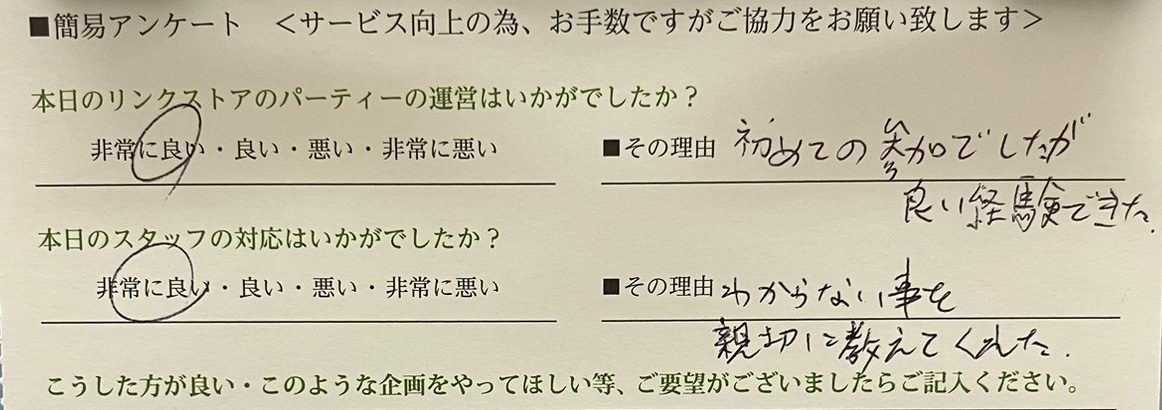 ■簡易アンケート ＜サービス向上の為、お手数ですがご協力をお願い致します＞
本日のリンクストアのパーティーの運営はいかがでしたか？
非常に良い・良い・悪い・非常に悪い ■その理由 初めての参加でしたが
良い経験できた.
本日のスタッフの対応はいかがでしたか？
非常に良い・良い・悪い・非常に悪い ■その理由 わからない事を
親切に教えてくれた.
こうした方が良い・このような企画をやってほしい等、ご要望がございましたらご記入ください。